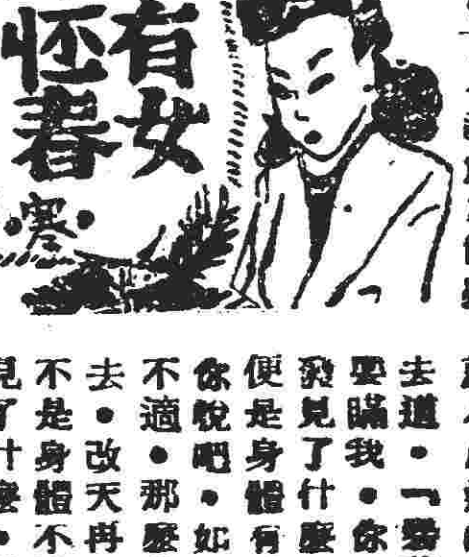 有女
怌春
去道・「
要瞞我・你
發見了什麼
便是身體有
你說吧・如
不適・那麼
去・改天再
不是身體不
見了什麼・